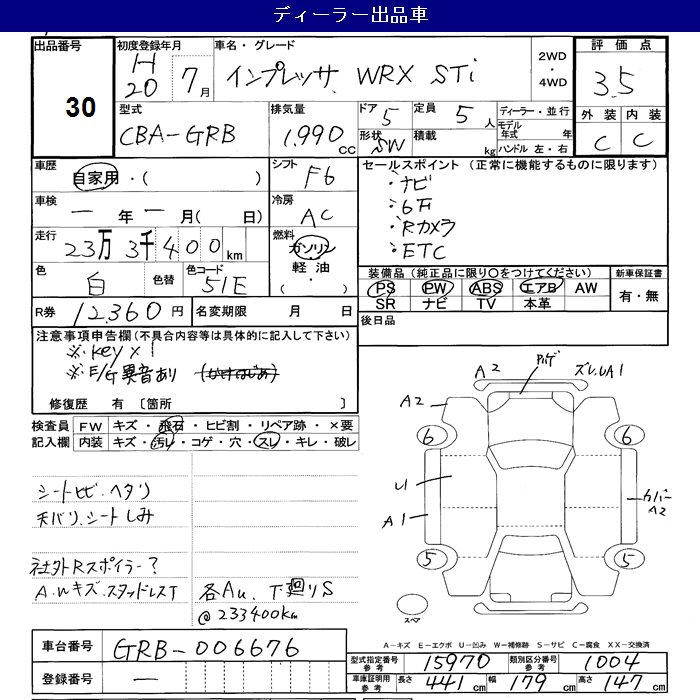 ディーラー出品車
出品番号 30
初度登録年月 H20 7月
車名・グレード インプレッサ WRX STi
2WD・4WD
評価点 3.5
外装 C 内装 C
型式 CBA-GRB
排気量 1,990cc
ドア 5 形状 SW
定員 5人 積載 kg
ディーラー・並行
モデル年式 年
ハンドル 左・右
車歴 自家用・( )
シフト F6
車検 一年一月( 日)
冷房 AC
走行 23万3千400km
燃料 ガソリン 軽油・
色 白 色替 色コード 51E
R券 12,360円 名変期限 月 日
セールスポイント (正常に機能するものに限ります)
・ナビ
・6F
・Rカメラ
・ETC
装備品(純正品に限り○をつけてください)
PS PW ABS エアB AW
SR ナビ TV 本革
新車保証書 有・無
後日品
注意事項申告欄(不具合内容等は具体的に記入して下さい)
※key×1
※E/G異音あり
修復歴 有〔箇所 〕
検査員記入欄
FW キズ・飛石・ヒビ割・リペア跡・×要
内装 キズ・汚レ・コゲ・穴・スレ・キレ・破レ
シートヒビ・ヘタリ
天バリ、シートしみ
社外Rスポイラー?
A.Wキズ.スタッドレスT
各Au、下廻りS
@233400km
A2 ズレ.UA1
A2
6 6
U1
A1
カバーA2
5 5
スペア
A-キズ E-エクボ U-凹み W-補修跡 S-サビ C-腐食 XX-交換済
車台番号 GRB-006676
登録番号 一
型式指定番号 参考 15970 類別区分番号 参考 1004
車庫証明用 参考 長さ 441cm 幅 179cm 高さ 147cm